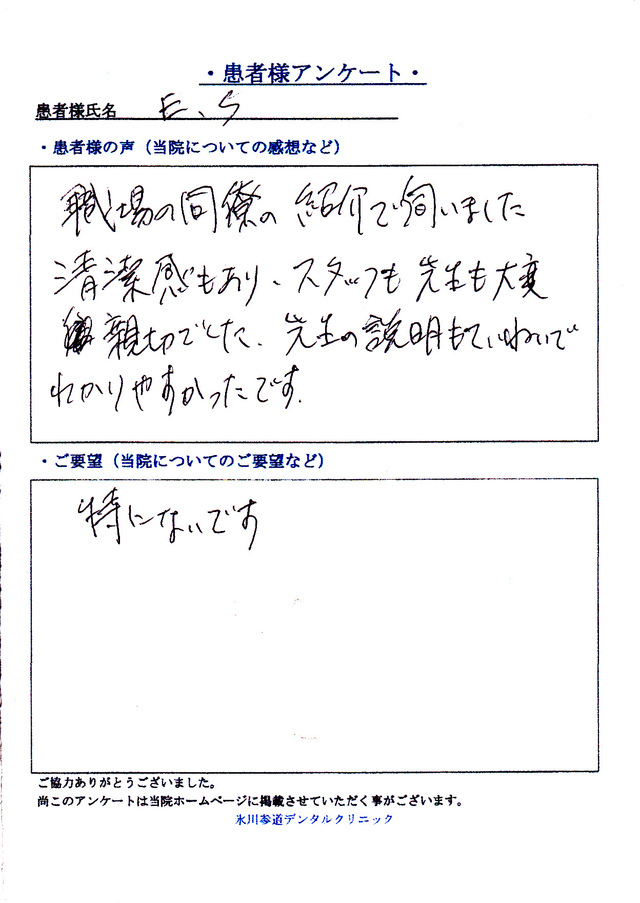 ・患者様アンケート・
患者様氏名 E、S
・患者様の声（当院についての感想など）
職場の同僚の紹介で伺いました
清潔感もあり、スタッフも先生も大変
親切でした、先生の説明もていねいで
わかりやすかったです.
・ご要望（当院についてのご要望など）
特にないです
ご協力ありがとうございました。
尚このアンケートは当院ホームページに掲載させていただく事がございます。
氷川参道デンタルクリニック